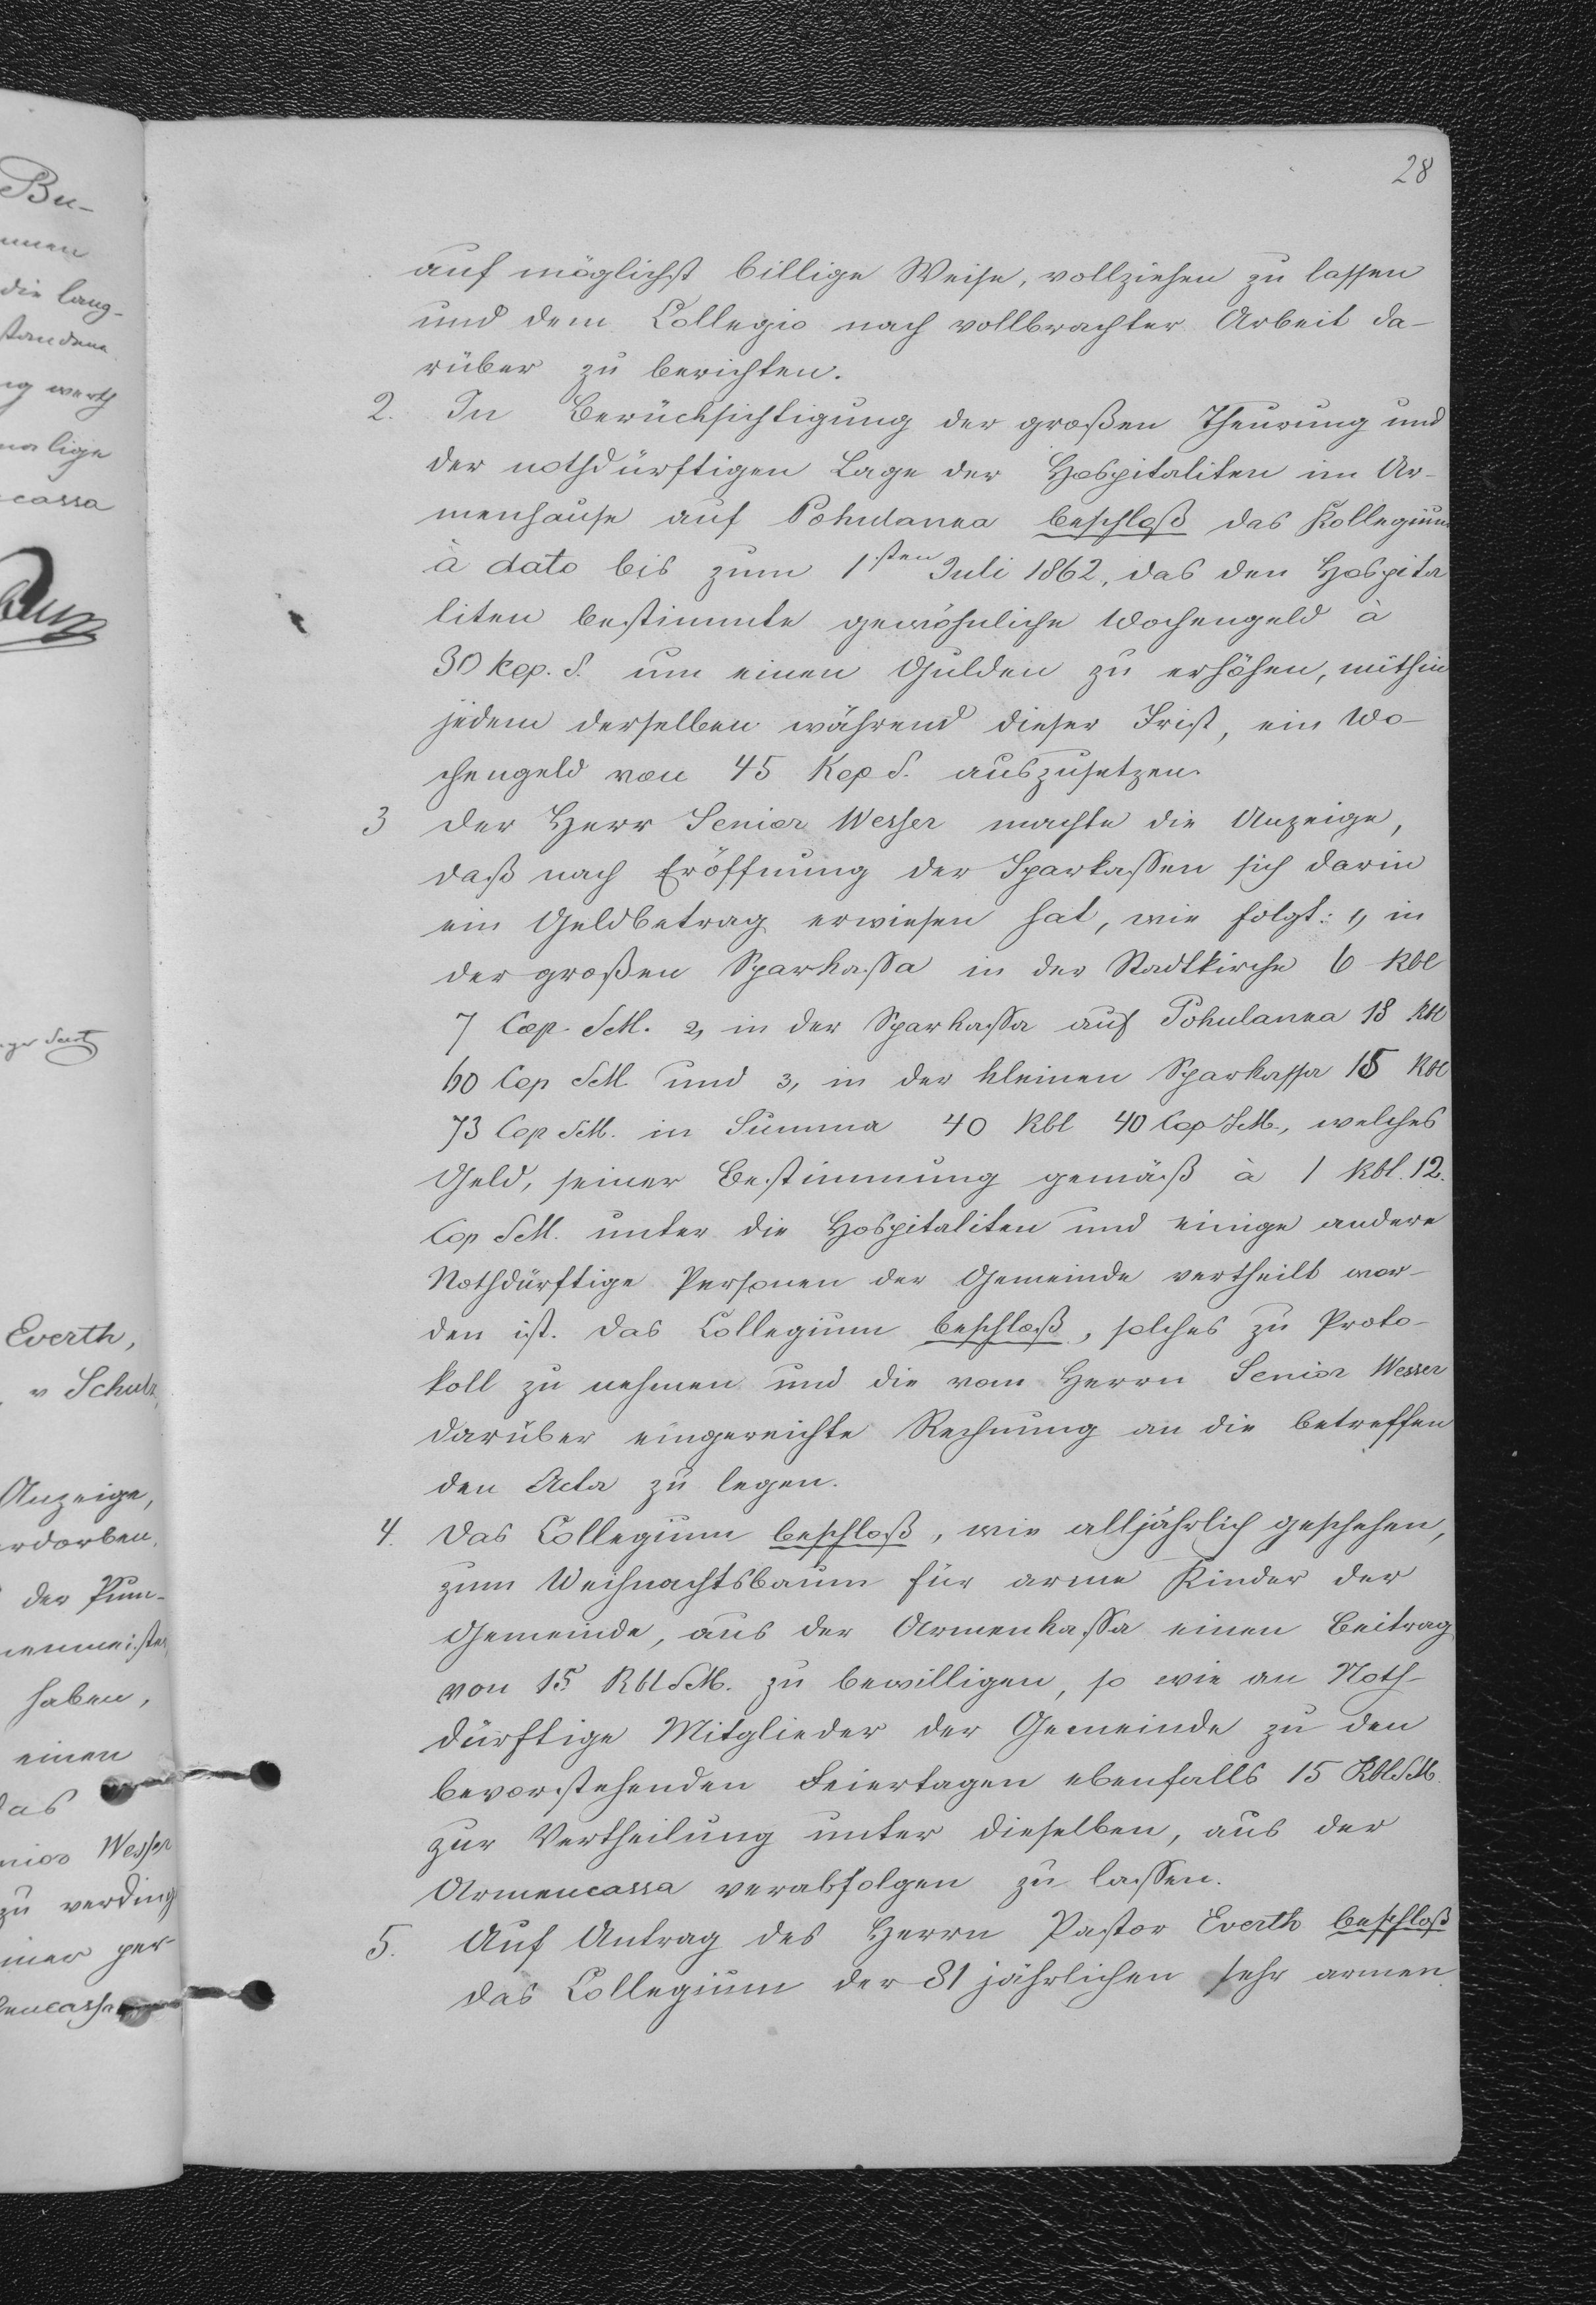 28
auf möglichst billige Weise, vollziehen zu lassen
und dem Collegio nach vollbrachter Arbeit da-
rüber zu berichten.
2. In Berücksichtigung der großen Theurung und
der nothdürftigen Lage der Hospitaliten im Ar-
menhause auf Pohulanca beschloß das Kollegium
à dato bis zum 1sten Juli 1862, das den Hospita
liten bestimmte gewöhnliche Wochengeld à
30 kop. S. um einen Gulden zu erhöhen, mithin
jedem derselben während dieser Frist, ein Wo-
chengeld von 45 Kop S. auszusetzen.
3 Der Herr Senior Wesser machte die Anzeige,
daß nach Eröffnung der Sparkassen sich darin
ein Geldbetrag erwiesen hat, wie folgt: 1, in
der großen Sparkassa in der Stadtkirche 6 Rbl
7 Cop. SM. 2, in der Sparkassa auf Pohulanca 18 Rbl
60 Cop SM und 3, in der kleinen Sparkassa 15 Rbl
73 Cop SM. in Summa 40 Rbl 40 Cop SM., welches
Geld, seiner Bestimmung gemäß à 1 Rbl. 12.
Cop SM. unter die Hospitaliten und einige andere
Nothdürftige Personen der Gemeinde vertheilt wor-
den ist. Das Collegium beschloß, solches zu Proto-
koll zu nehmen und die vom Herrn Senior Wesser
darüber eingereichte Rechnung an die betreffen
den Acta zu legen.
4. Das Collegium beschloß, wie alljährlich geschehen,
zum Weihnachtsbaum für arme Kinder der
Gemeinde, aus der Armenkassa einen Beitrag
von 15 Rbl SM. zu bewilligen, so wie an Noth-
dürftige Mitglieder der Gemeinde zu den
bevorstehenden Feiertagen ebenfalls 15 Rbl SM.
zur Vertheilung unter dieselben, aus der
Armencassa verabfolgen zu lassen.
5. Auf Antrag des Herrn Pastor Everth beschloß
das Collegium der 81 jährlichen sehr armen
Bu-
die lang-
standene
werth
malige
cassa
Everth,
v Schulz,
Anzeige,
der Pum-
haben,
einen
das
Wesser
zu verding